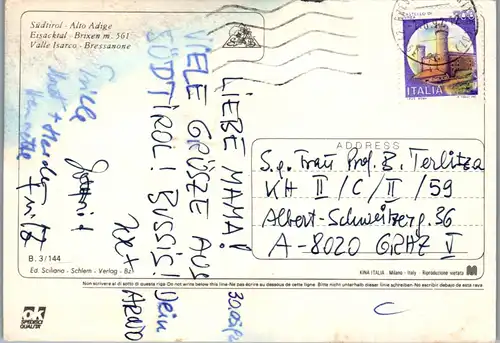 Südtirol - Alto Adige
Eisacktal - Brixen m. 561
Valle Isarco - Bressanone
LIEBE MAMA!
VIELE GRÜSZE AUS
SÜDTIROL! BUSSIS!
Dein
ITALIA
ADDRESS
S.g. Frau Prof. B. Terlitza
KH II/C/II/59
Albert-Schweitzerg. 36
A-8020 GRAZ V
B. 3/144
Ed. Sciliana - Schlern - Verlag - Bz
KINA ITALIA - Milano - Italy - Riproduzione vietata
Non scrivere al di sotto di questa riga-Do not write below this line-Ne pas écrire au dessous de cette ligne. Bitte nicht unterhalb dieser linie schreiben-No escribir debajo de esta raya
ok
SPEDISCI
QUALITA'
C